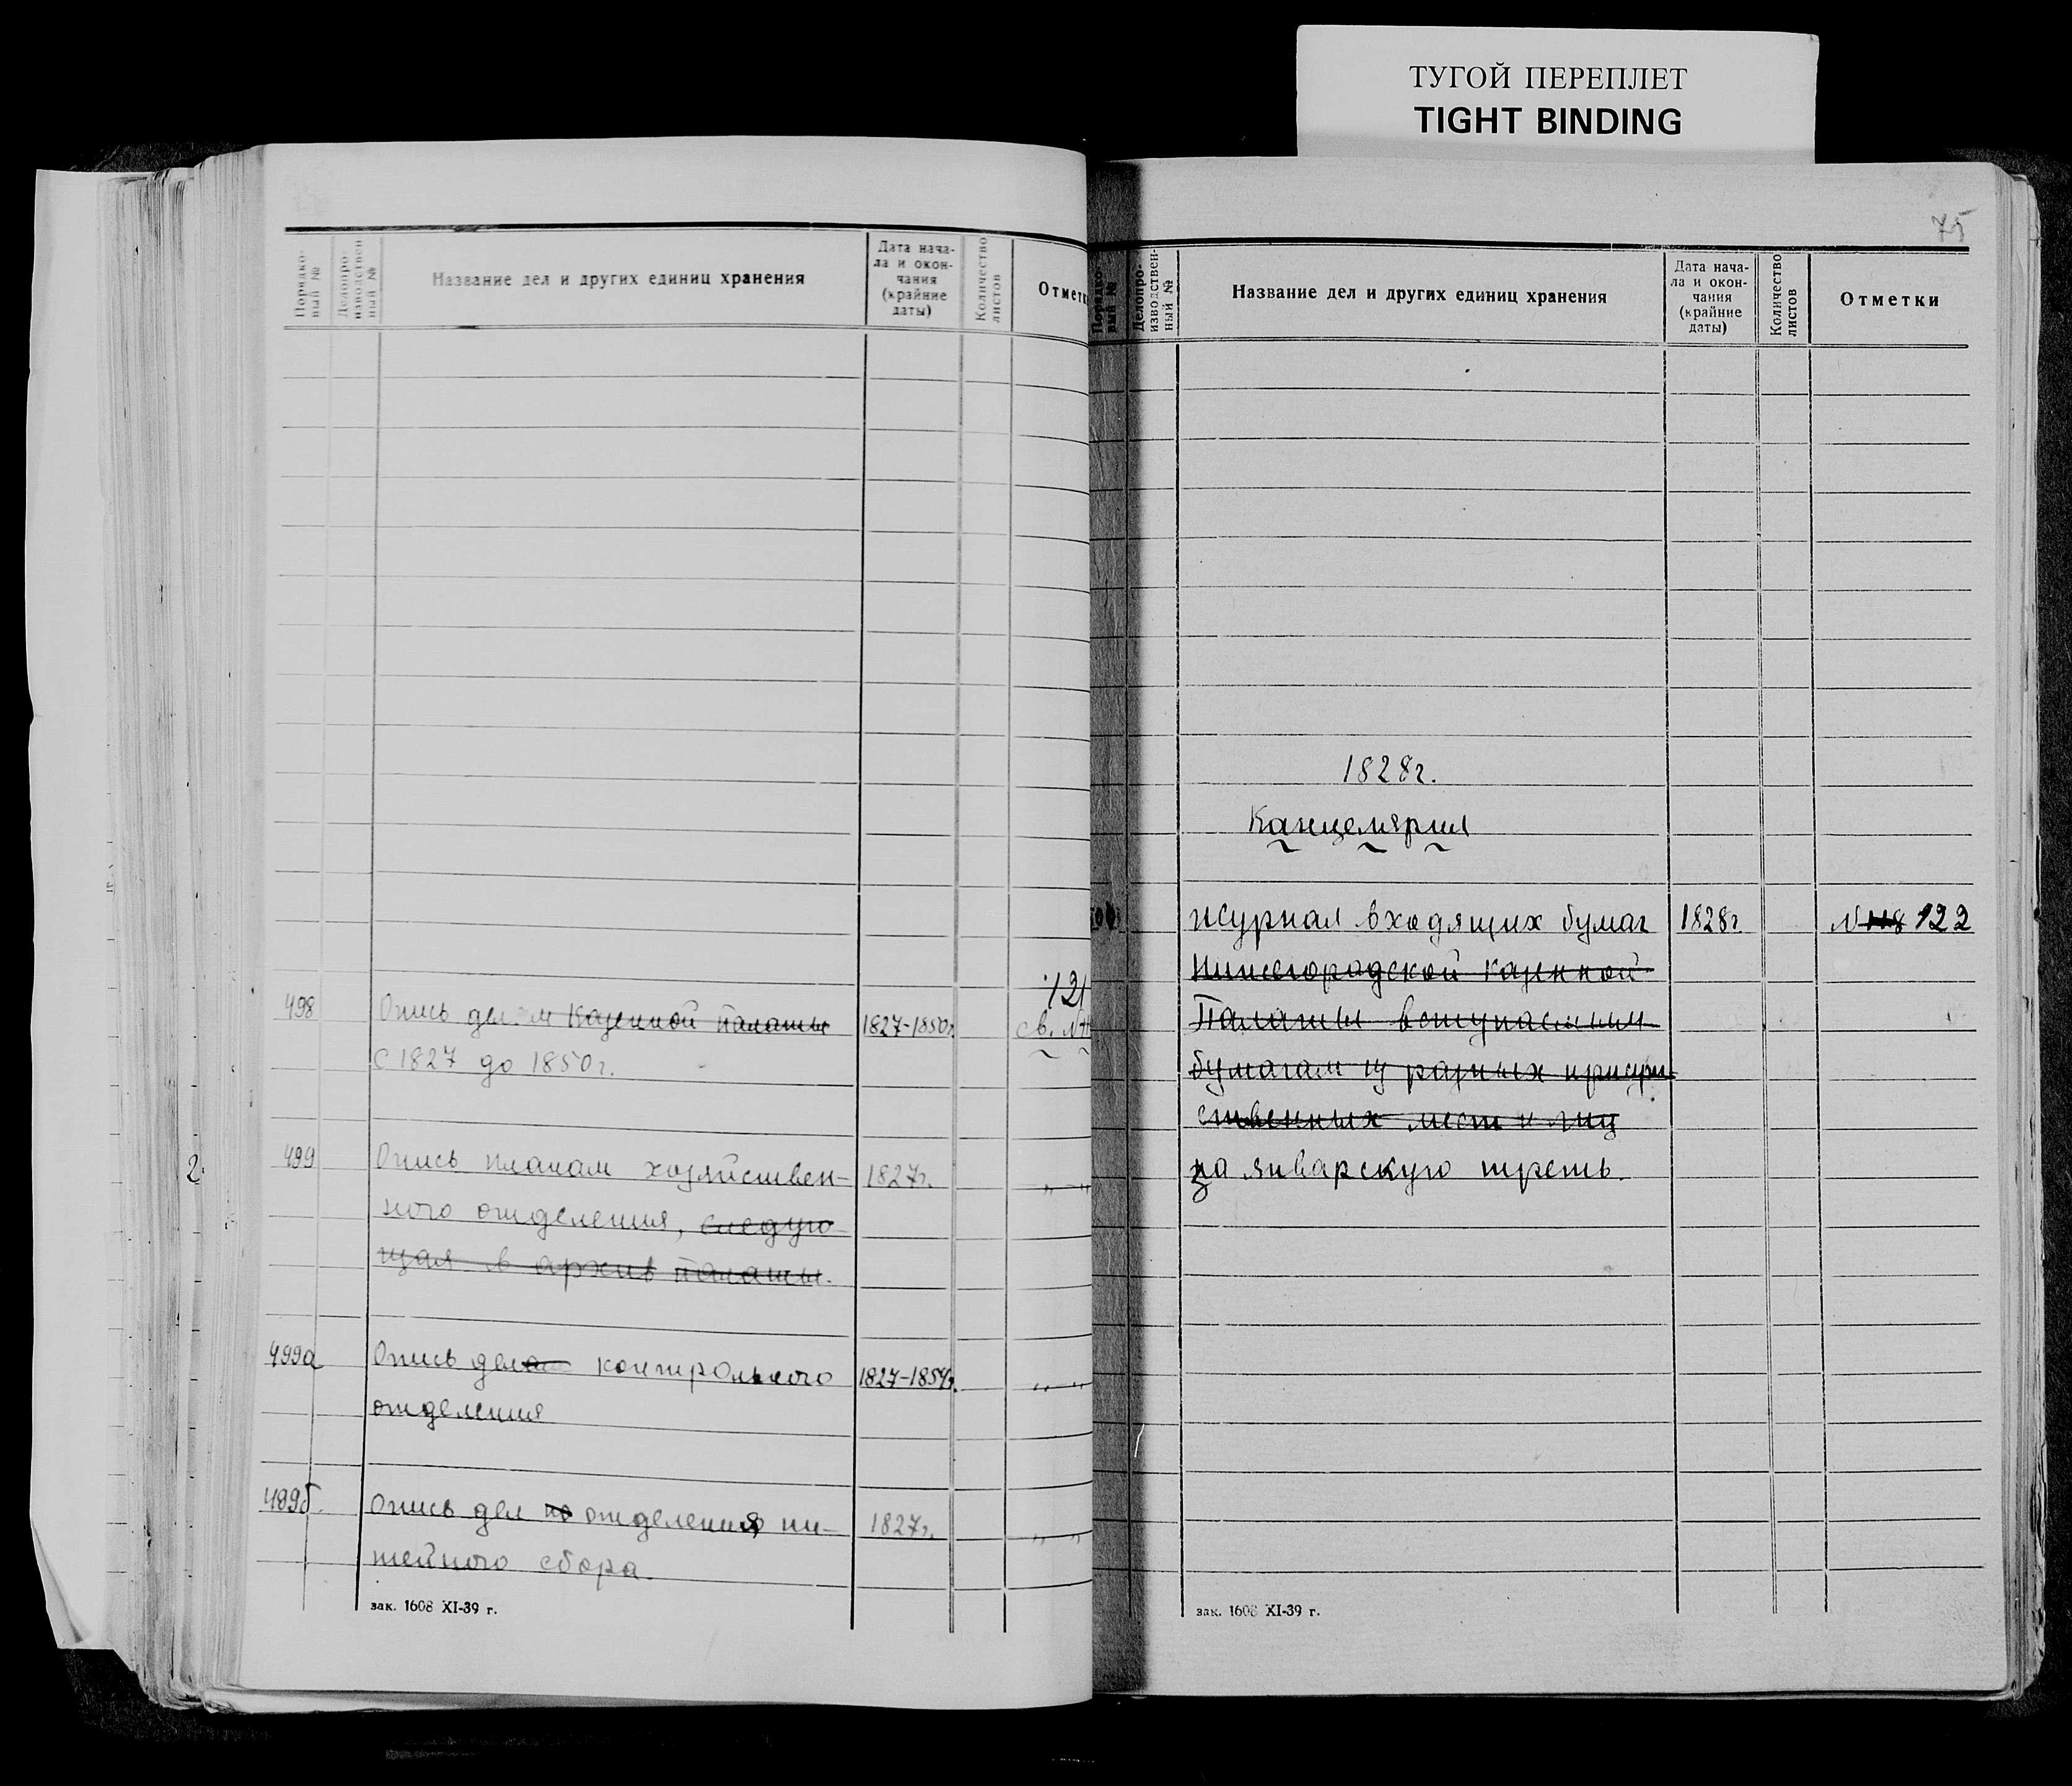 ТУГОЙ ПЕРЕПЛЕТ
TIGHT BINDING
Порядко-
вый №
Делопро-
изводствен
ный №
Название дел и других единиц хранения
Дата нача-
ла и окон-
чания
(крайние
даты)
Количество
листов
Отметк
498 Опись делам Казенной палаты 1827-1850г. 121 св. №
с 1827 до 1850г.
499 Опись планам хозяйствен- 1827г. " "
ного отделения, следую
щая в архив палаты.
499а Опись делам контрольного 1827-1854г. " "
отделения
499б. Опись дел по отделения пи- 1827г. " "
тейного сбора.
зак. 1608 XI-39 г.
2.
75
Порядко-
вый №
Делопро-
изводствен-
ный №
Название дел и других единиц хранения
Дата нача-
ла и окон-
чания
(крайние
даты)
Количество
листов
Отметки
1828г.
Канцелярия
Журнал входящих бумаг 1828г N 118 122
Нижегородской казенной
Палаты вступаемым
бумагам из разных присут
ственных мест и лиц
за январскую треть.
зак. 1608 XI-39 г.